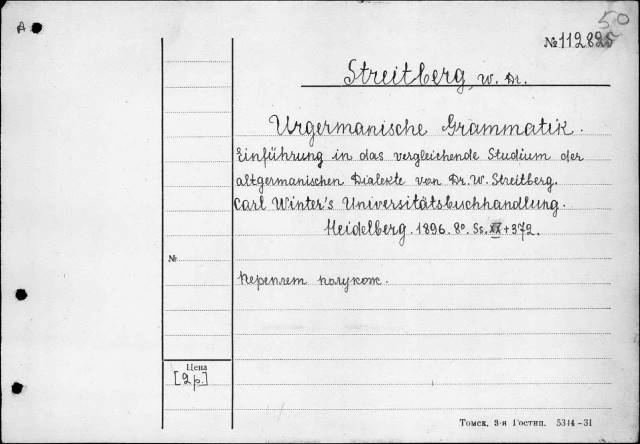 А
50
№ 112825
Streitberg, W. Dr.
Urgermanische Grammatik.
Einführung in das vergleichende Studium der
altgermanischen Dialekte von Dr. W. Streitberg.
Carl Winter's Universitätsbuchhandlung.
Heidelberg. 1896. 8º. Ss. XX + 372.
№
Переплет полукож.
Цена
[2 р.]
Томск, 3-я Гостип. 5314-31